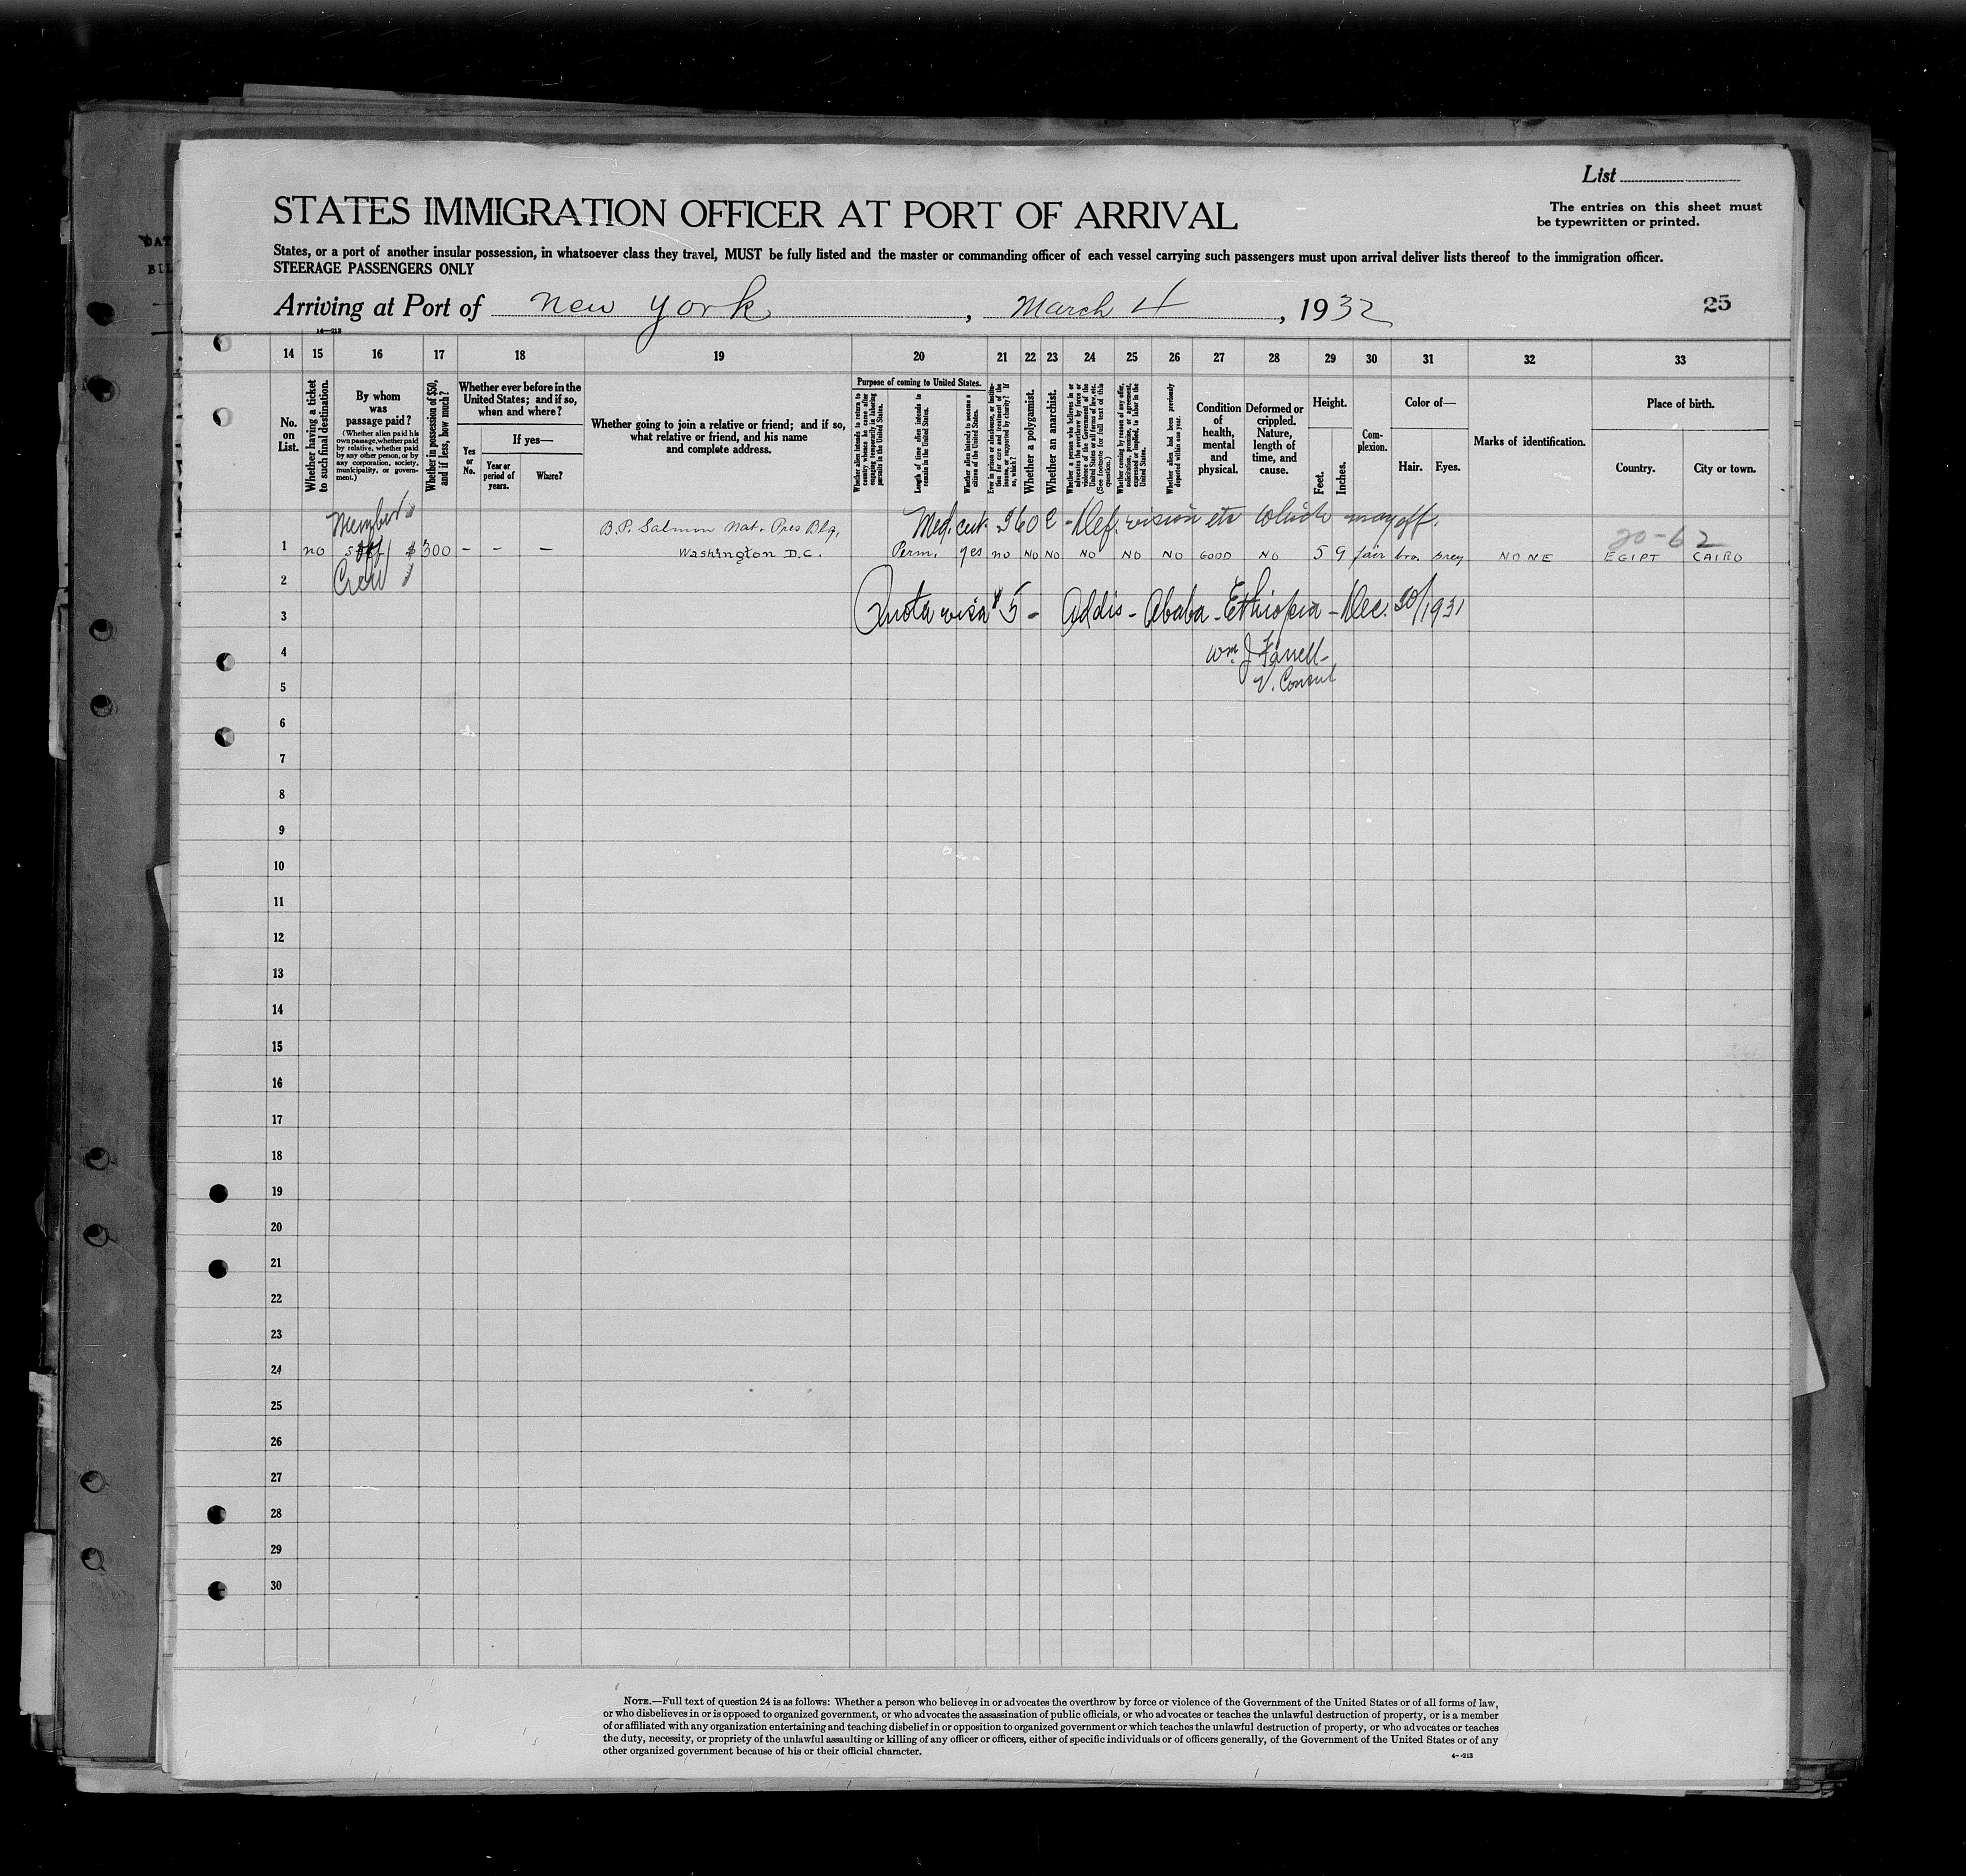 DAT
BIL
List
STATES IMMIGRATION OFFICER AT PORT OF ARRIVAL
The entries on this sheet must
be typewritten or printed.
States, or a port of another insular possession, in whatsoever class they travel, MUST be fully listed and the master or commanding officer of each vessel carrying such passengers must upon arrival deliver lists thereof to the immigration officer.
STEERAGE PASSENGERS ONLY
Arriving at Port of New York, March 4, 1932
25
14—213
14 15 16 17 18 19 20 21 22 23 24 25 26 27 28 29 30 31 32 33
No. on List.
Whether having a ticket to such final destination.
By whom was passage paid?
(Whether alien paid his own passage, whether paid by relative, whether paid by any other person, or by any corporation, society, municipality, or government.)
Whether in possession of $50, and if less, how much?
Whether ever before in the United States; and if so, when and where?
Yes or No.
If yes—
Year or period of years.
Where?
Whether going to join a relative or friend; and if so, what relative or friend, and his name and complete address.
Purpose of coming to United States.
Whether alien intends to return to country whence he came after engaging temporarily in laboring pursuits in the United States.
Length of time alien intends to remain in the United States.
Whether alien intends to become a citizen of the United States.
Ever in prison or almshouse, or institution for care and treatment of the insane, or supported by charity? If so, which?
Whether a polygamist.
Whether an anarchist.
Whether a person who believes in or advocates the overthrow by force or violence of the Government of the United States or all forms of law, etc. (See footnote for full text of this question.)
Whether coming by reason of any offer, solicitation, promise, or agreement, expressed or implied, to labor in the United States.
Whether alien had been previously deported within one year.
Condition of health, mental and physical.
Deformed or crippled. Nature, length of time, and cause.
Height.
Feet.
Inches.
Complexion.
Color of—
Hair.
Eyes.
Marks of identification.
Place of birth.
Country.
City or town.
Member
B.P. Salmon Nat. Pres Blg,
Med. cert. 3602 - Def. vision etc which may aff.
20-62
1 no staff $300 - - - Washington D.C. Perm. yes no NO NO NO NO NO GOOD NO 5 9 fair bro. Grey NONE EGIPT CAIRO
2 Crew
3 Quota visa #5 - Addis - Ababa - Ethiopia - Dec. 30/1931
4 Wm J Farrell -
V. Consul
5
6
7
8
9
10
11
12
13
14
15
16
17
18
19
20
21
22
23
24
25
26
27
28
29
30
NOTE.—Full text of question 24 is as follows: Whether a person who believes in or advocates the overthrow by force or violence of the Government of the United States or of all forms of law,
or who disbelieves in or is opposed to organized government, or who advocates the assassination of public officials, or who advocates or teaches the unlawful destruction of property, or is a member
of or affiliated with any organization entertaining and teaching disbelief in or opposition to organized government or which teaches the unlawful destruction of property, or who advocates or teaches
the duty, necessity, or propriety of the unlawful assaulting or killing of any officer or officers, either of specific individuals or of officers generally, of the Government of the United States or of any
other organized government because of his or their official character.
4—213